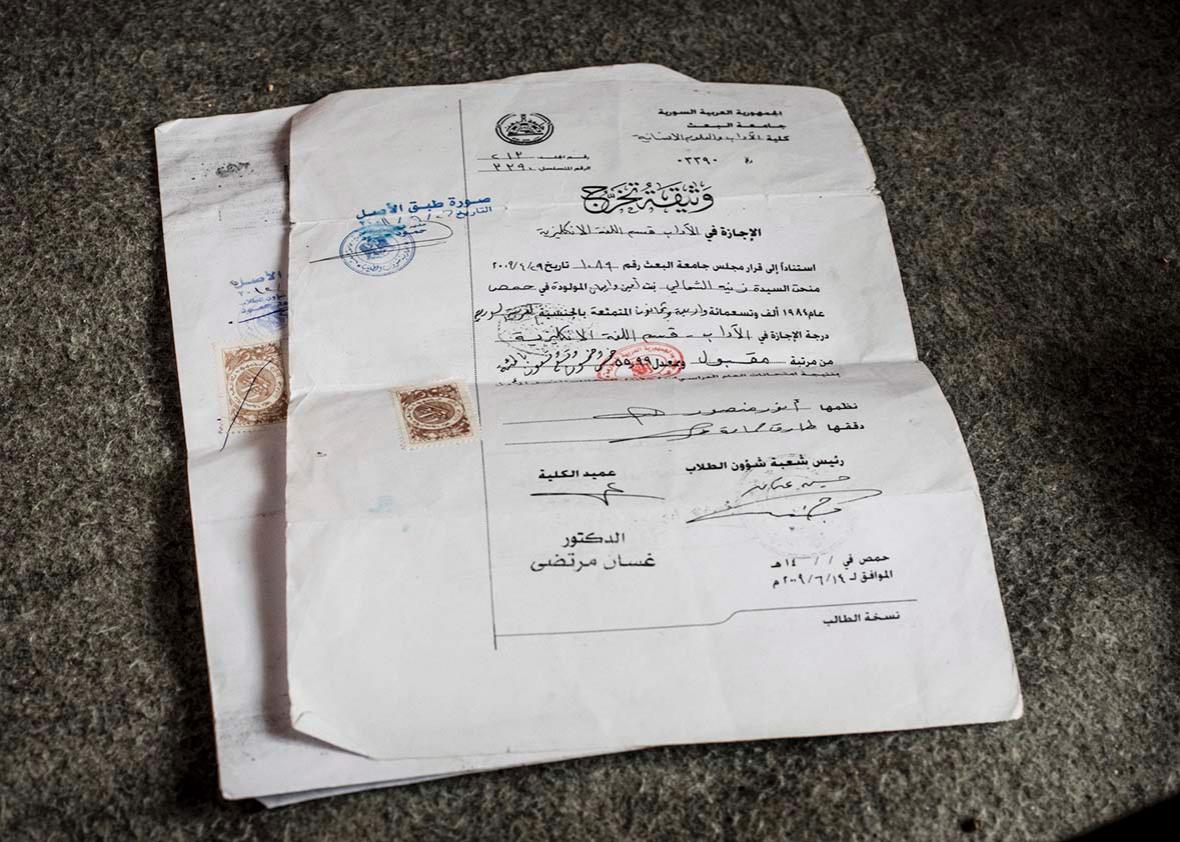 الجمهورية العربية السورية
جامعة البعث
كلية الآداب والعلوم الإنسانية
رقم الجلد ٢١٢
الرقم المتسلسل ٣٣٩٠
٠٣٣٩٠
وثيقة تخرج
صورة طبق الأصل
التاريخ
الإجازة في الآداب قسم اللغة الانكليزية
استناداً إلى قرار مجلس جامعة البعث رقم ١٠٨٩ تاريخ ٢٠٠٩/٤/٢٩
منحت السيدة الشمالي بنت أمين المولودة في حمص
عام ١٩٨٤ ألف وتسعمائة وأربعة وثمانون المتمتعة بالجنسية العربية السورية
درجة الإجازة في الآداب - قسم اللغة الانكليزية
من مرتبة مقبول وبمعدل ٥٥,٩٩
نظمها أنور منصور
دققها طارق
رئيس شعبة شؤون الطلاب
عميد الكلية
الدكتور
غسان مرتضى
حمص في / / ١٤ هـ
الموافق لـ ٢٠٠٩/٦/١٩ م
نسخة الطالب
الأصل
شؤون الطلاب